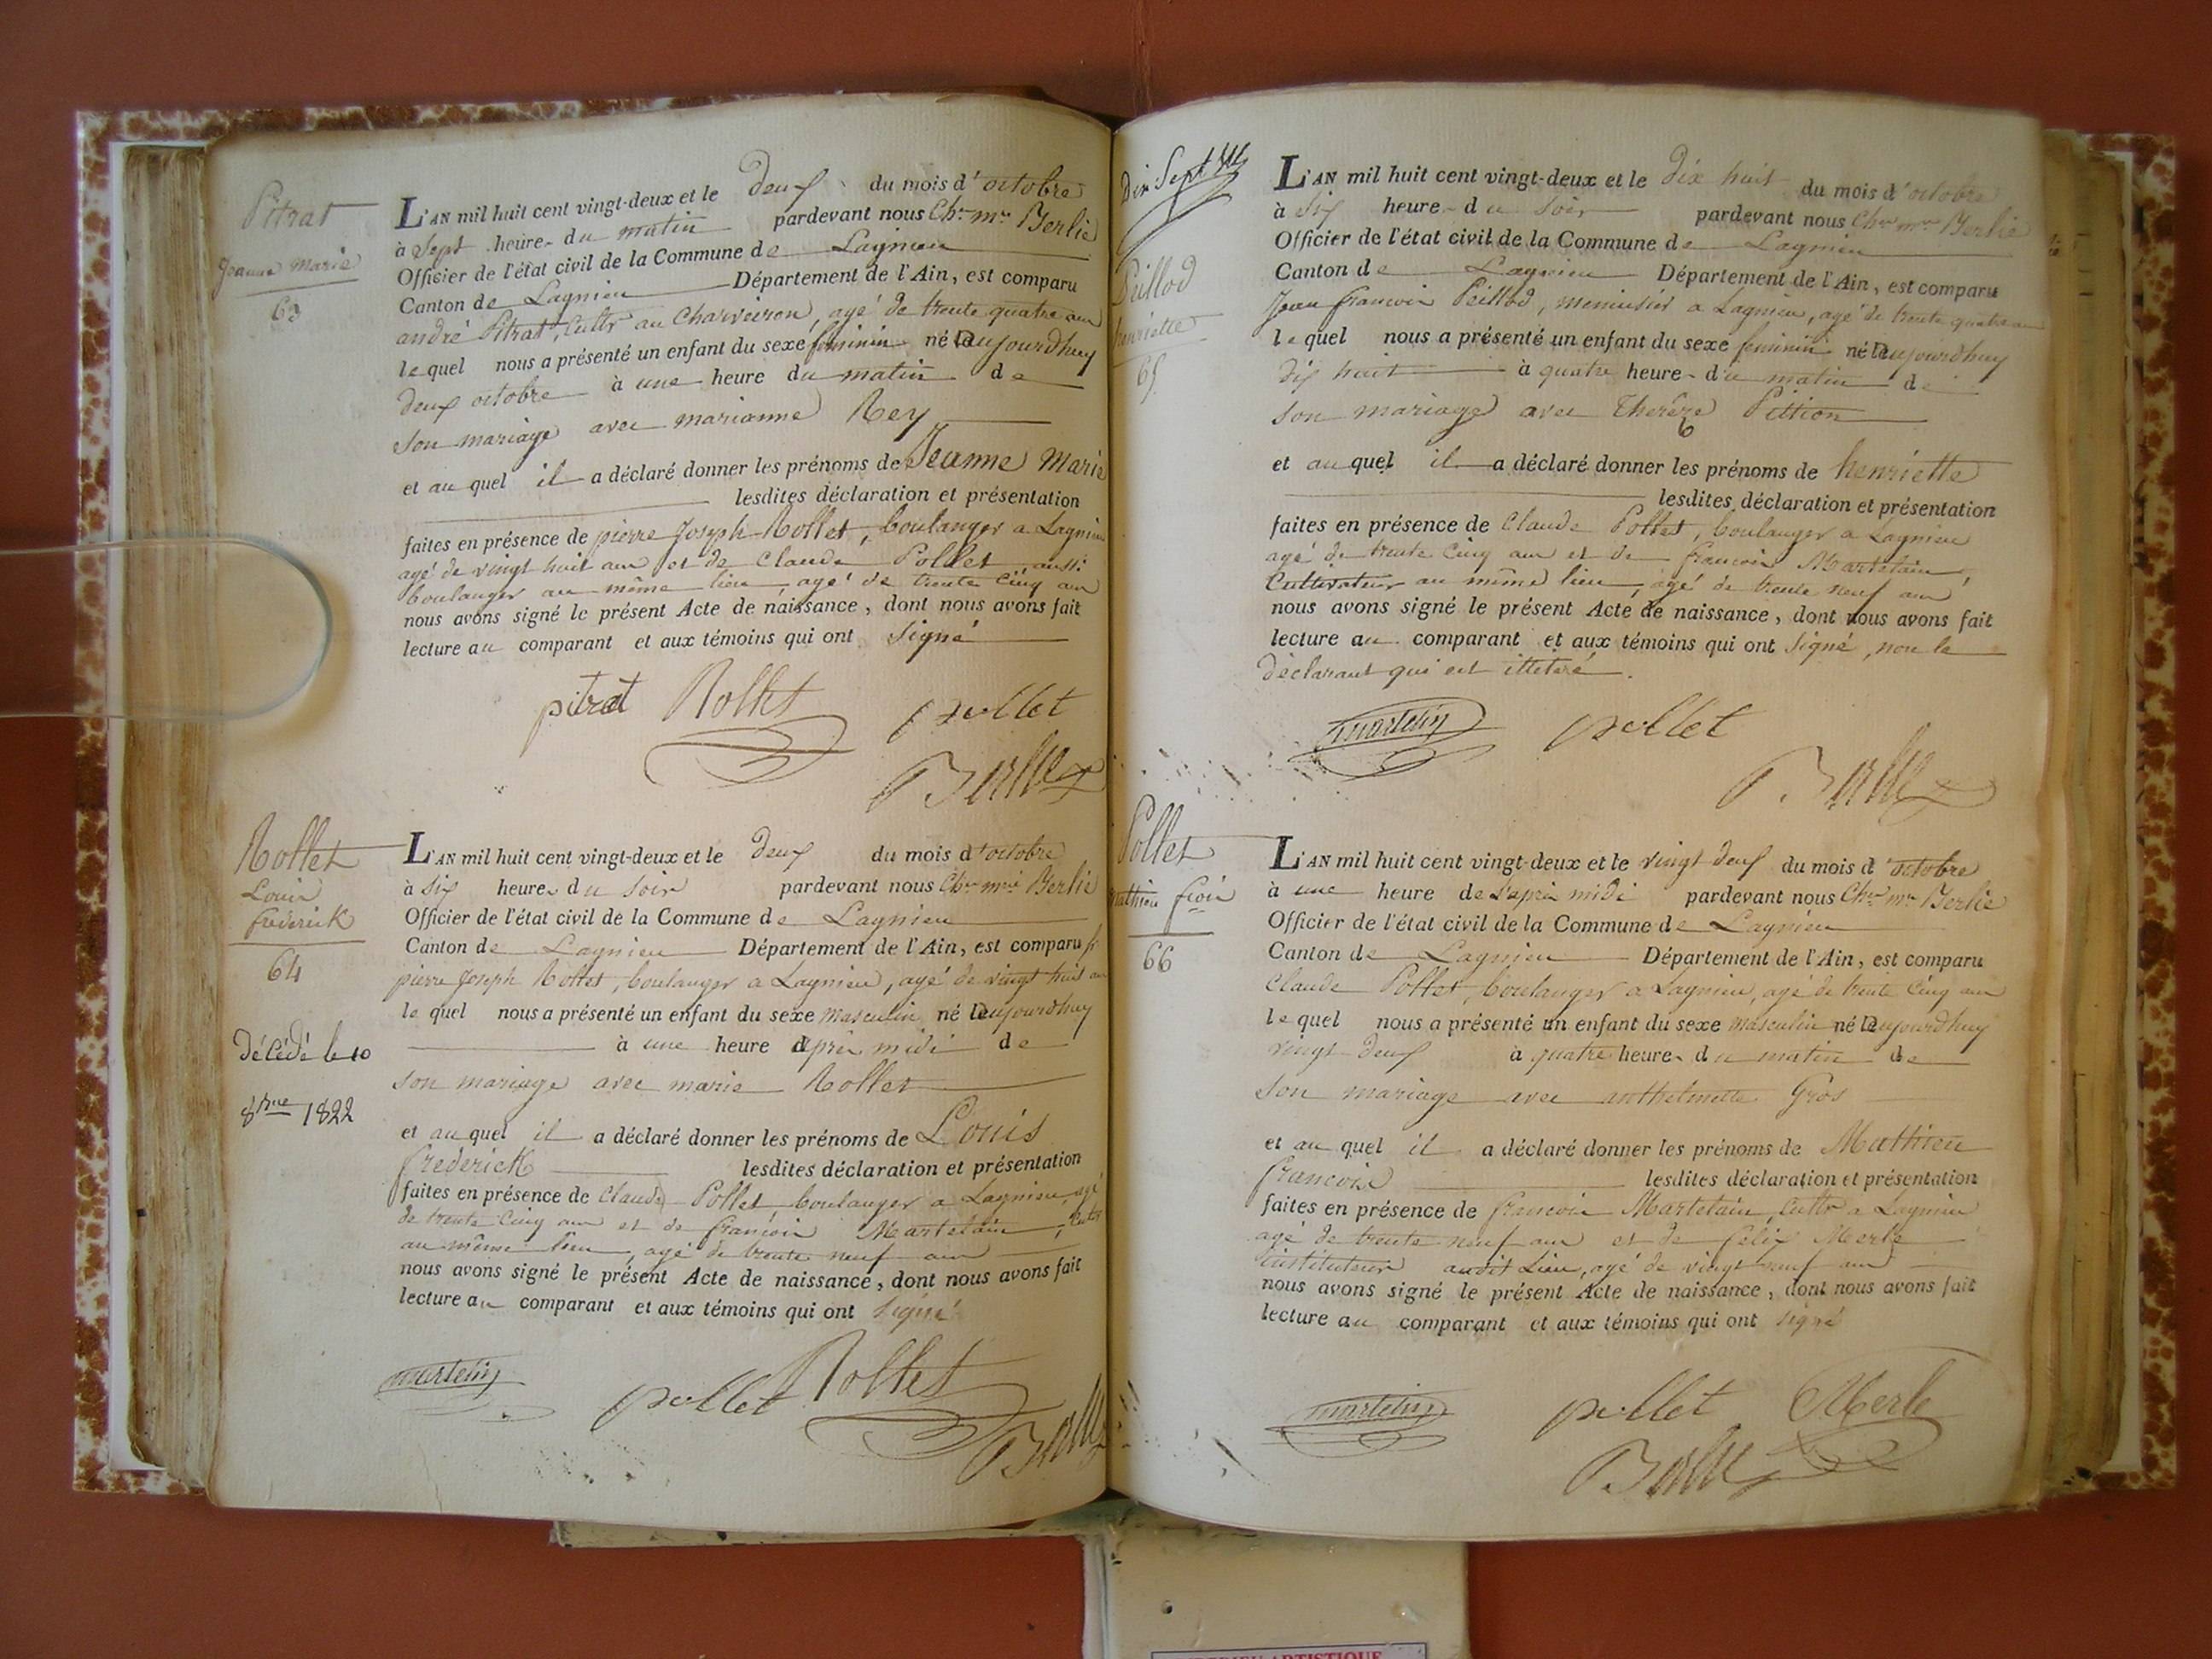 Pitrat
Jeanne Marie
63
L'AN mil huit cent vingt-deux et le deux du mois d'octobre
à Sept heures du matin pardevant nous Ch.er m.re Berlie
Officier de l'état civil de la Commune de Lagnieu
Canton de Lagnieu Département de l'Ain, est comparu
andré Pitrat, Cultr au Charveiron, agé de trente quatre ans
le quel nous a présenté un enfant du sexe feminin né Daujourdhuy
deux octobre à une heure du matin de
son mariage avec marianne Rey
et au quel il a déclaré donner les prénoms de Jeanne Marie
lesdites déclaration et présentation
faites en présence de pierre Joseph Rollet, boulanger a Lagnieu
agé de vingt huit ans et de Claude Pollet aussi
boulanger au même lieu, agé de trente Cinq ans
nous avons signé le présent Acte de naissance, dont nous avons fait
lecture au comparant et aux témoins qui ont Signé
pitrat Rollet pollet
Berlie
Rollet
Louis
frederick
64
Décédé le 10
8bre 1822
L'AN mil huit cent vingt-deux et le deux du mois d'octobre
à six heures du soir pardevant nous Ch.er m.re Berlie
Officier de l'état civil de la Commune de Lagnieu
Canton de Lagnieu Département de l'Ain, est comparu
pierre Joseph Rollet, boulanger a Lagnieu, agé de vingt huit ans
le quel nous a présenté un enfant du sexe masculin né Daujourdhuy
à une heure après midi de
son mariage avec marie Rollet
et au quel il a déclaré donner les prénoms de Louis
frederick lesdites déclaration et présentation
faites en présence de Claude Pollet boulanger a Lagnieu, agé
de trente Cinq ans et de françois Martelain, Cultr
au même lieu, agé de trente neuf ans
nous avons signé le présent Acte de naissance, dont nous avons fait
lecture au comparant et aux témoins qui ont signé
martelin pollet Rollet
Berlie
Dix Sept
Peillod
henriette
65
L'AN mil huit cent vingt-deux et le dix huit du mois d'octobre
à Six heures du soir pardevant nous Ch.er m.re Berlie
Officier de l'état civil de la Commune de Lagnieu
Canton de Lagnieu Département de l'Ain, est comparu
Jean françois Peillod, menuisier a Lagnieu, agé de trente quatre ans
le quel nous a présenté un enfant du sexe feminin né Daujourdhuy
dix huit à quatre heures du matin de
son mariage avec Therèze Pittion
et au quel il a déclaré donner les prénoms de henriette
lesdites déclaration et présentation
faites en présence de Claude Pollet, boulanger a Lagnieu
agé de trente Cinq ans et de françois Martelain,
Cultivateur au même lieu, agé de trente neuf ans
nous avons signé le présent Acte de naissance, dont nous avons fait
lecture au comparant et aux témoins qui ont Signé, non le
declarant qui est illeteré.
martelin pollet
Berlie
Pollet
Mathieu fçois
66
L'AN mil huit cent vingt-deux et le vingt deux du mois d'octobre
à une heure de L'après midi pardevant nous Ch.er m.re Berlie
Officier de l'état civil de la Commune de Lagnieu
Canton de Lagnieu Département de l'Ain, est comparu
Claude Pollet, boulanger a Lagnieu, agé de trente Cinq ans
le quel nous a présenté un enfant du sexe masculin né Daujourdhuy
vingt deux à quatre heures du matin de
son mariage avec anthelmette Gros
et au quel il a déclaré donner les prénoms de Mathieu
françois lesdites déclaration et présentation
faites en présence de françois Martelain Cultr a Lagnieu
agé de trente neuf ans et de felix Merle
instituteur audit Lieu, agé de vingt neuf ans
nous avons signé le présent Acte de naissance, dont nous avons fait
lecture au comparant et aux témoins qui ont signé
martelin pollet Merle
Berlie
ARTISTIQUE